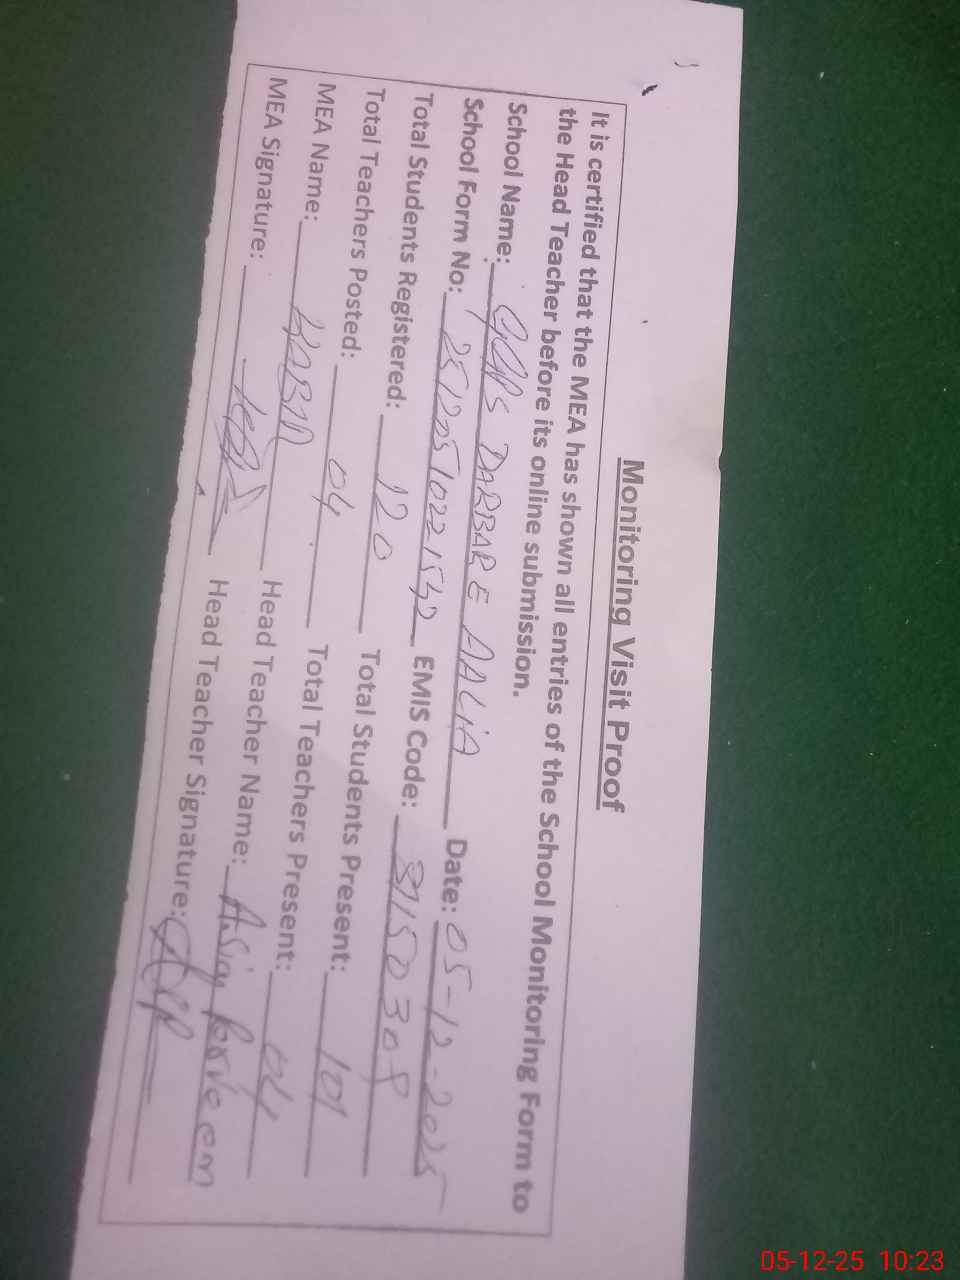 Monitoring Visit Proof
It is certified that the MEA has shown all entries of the School Monitoring Form to
the Head Teacher before its online submission.
School Name: GGPS DARBAR E AALIA Date: 05-12-2025
School Form No: 25120510221542 EMIS Code:
Total Students Registered: 120 Total Students Present: 101
Total Teachers Posted: 04 Total Teachers Present: 04
MEA Name: KABIR Head Teacher Name: Asia Parveen
MEA Signature: Head Teacher Signature:
05-12-25 10:23